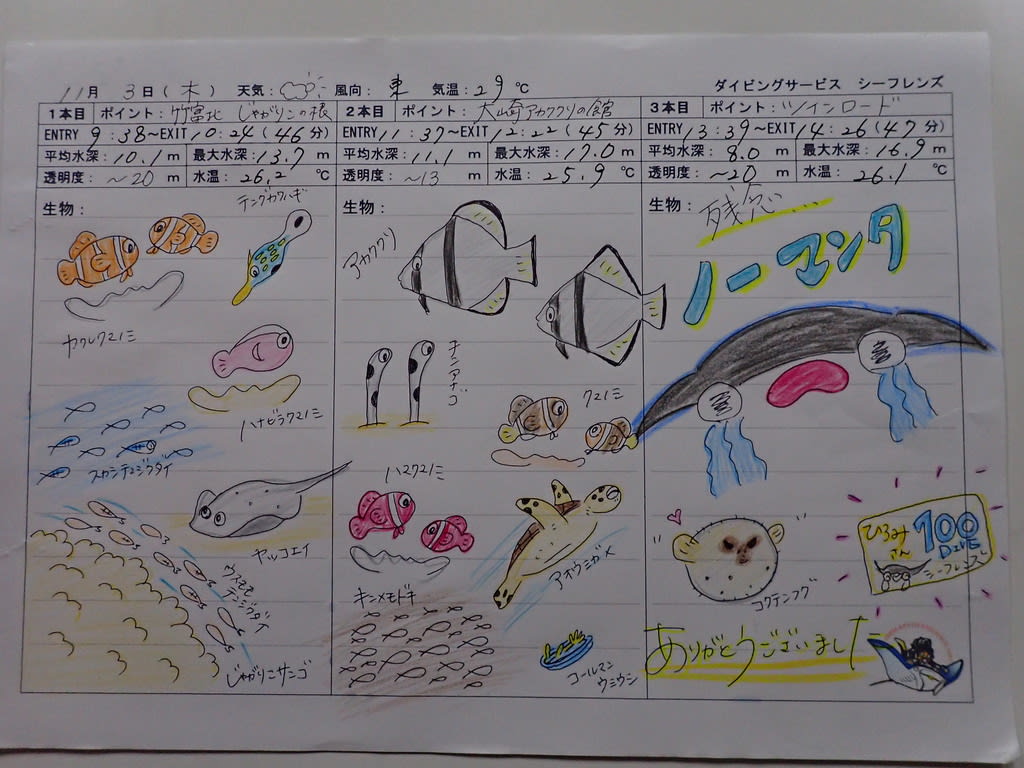 11月 3日(木) 天気: 風向: 東 気温: 29℃ ダイビングサービス シーフレンズ
1本目 ポイント: 竹富北 じゃがりこの根
ENTRY 9:38～EXIT 10:24(46分)
平均水深: 10.1m 最大水深: 13.7m
透明度: ～20m 水温: 26.2℃
生物:
テングカワハギ
ヤクレクマノミ
ハナビラクマノミ
スカシテンジクダイ
ヤッコエイ
ウスモモテンジクダイ
じゃがりこサンゴ
2本目 ポイント: 大崎アカククリの館
ENTRY 11:37～EXIT 12:22(45分)
平均水深: 11.1m 最大水深: 17.0m
透明度: ～13m 水温: 25.9℃
生物:
アカククリ
チンアナゴ
クマノミ
ハマクマノミ
アオウミガメ
キンメモドキ
コールマン
ウミウシ
3本目 ポイント: ツインロード
ENTRY 13:39～EXIT 14:26(47分)
平均水深: 8.0m 最大水深: 16.9m
透明度: ～20m 水温: 26.1℃
生物:
残念...
ノーマンタ
ひろみさん
100
DIVE
シーフレンズ
コクテンフグ
ありがとうございましたー